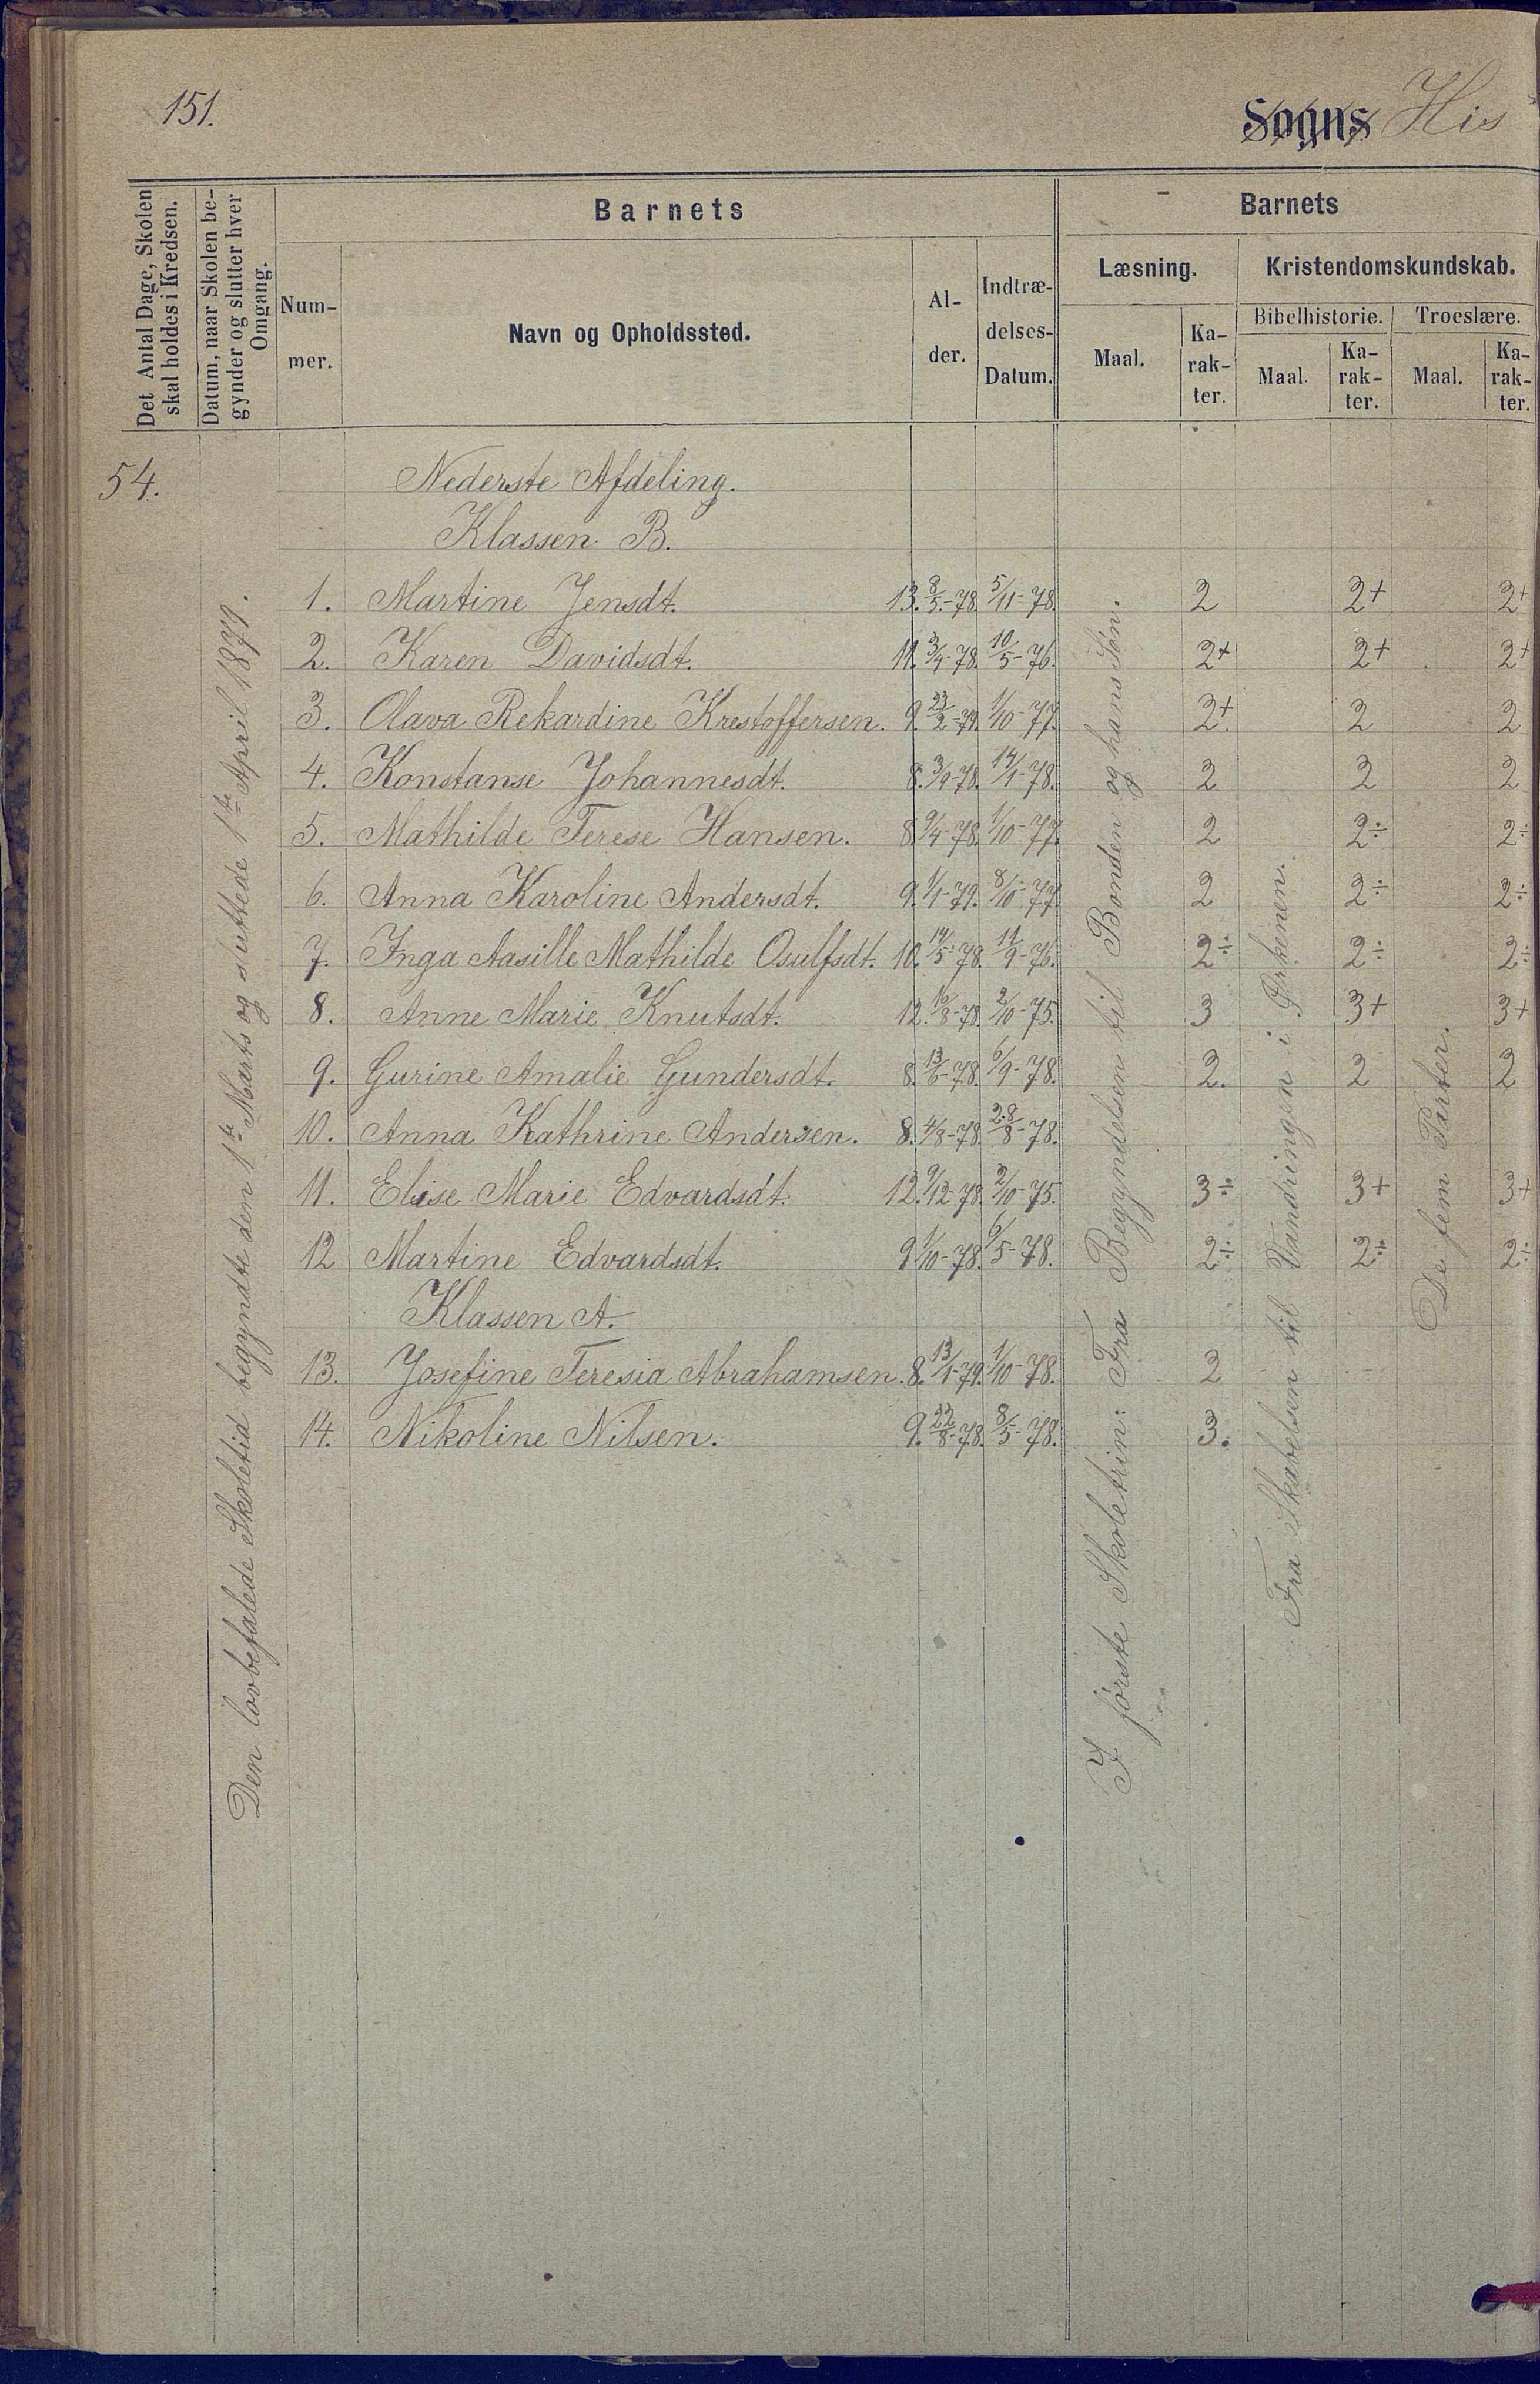 151.
Sogns His
Det Antal Dage, Skolen skal holdes i Kredsen.
Datum, naar Skolen begynder og slutter hver Omgang.
Barnets
Nummer.
Navn og Opholdssted.
Alder.
Indtrædelses-Datum.
Barnets
Læsning.
Maal.
Karakter.
Kristendomskundskab.
Bibelhistorie.
Maal.
Karakter.
Troeslære.
Maal.
Karakter.
54.
Den lovbefalede Skoletid begyndte den 1ste Marts og sluttede 1ste April 1879.
Nederste Afdeling.
Klassen B.
1. Martine Jensdt. 13. 8/5-78. 5/11-78. 2 2+ 2+
2. Karen Davidsdt. 11. 3/4-78. 10/5-76. 2+ 2+ 2+
3. Olava Rekardine Krestoffersen. 9. 23/2-79. 1/10-77. 2+. 2 2
4. Konstanse Johannesdt. 8. 3/9-78. 14/1-78. 2 2 2
5. Mathilde Terese Hansen. 8. 9/4-78. 1/10-77. 2 2÷ 2÷
6. Anna Karoline Andersdt. 9. 1/1-79. 8/10-77. 2 2÷ 2÷
7. Inga Aasille Mathilde Osulfsdt. 10. 14/5-78. 11/9-76. 2÷ 2÷ 2÷
8. Anne Marie Knutsdt. 12. 16/8-78. 2/10-75. 3 3+ 3+
9. Gurine Amalie Gundersdt. 8. 13/6-78. 6/9-78. 2. 2 2
10. Anna Kathrine Andersen. 8. 4/8-78. 28/8-78.
11. Elise Marie Edvardsdt. 12. 9/12-78. 2/10-75. 3÷ 3+ 3+
12 Martine Edvardsdt. 9 1/10-78. 6/5-78. 2÷ 2÷ 2÷
Klassen A.
13. Josefine Teresia Abrahamsen. 8. 13/1-79. 1/10-78. 2
14. Nikoline Nilsen. 9. 22/8-78. 8/5-78. 3.
I første Skoletrin: Fra Begyndelsen til Bonden og hans Søn.
Fra Skabelsen til Vandringen i Ørkenen.
De fem Parter.